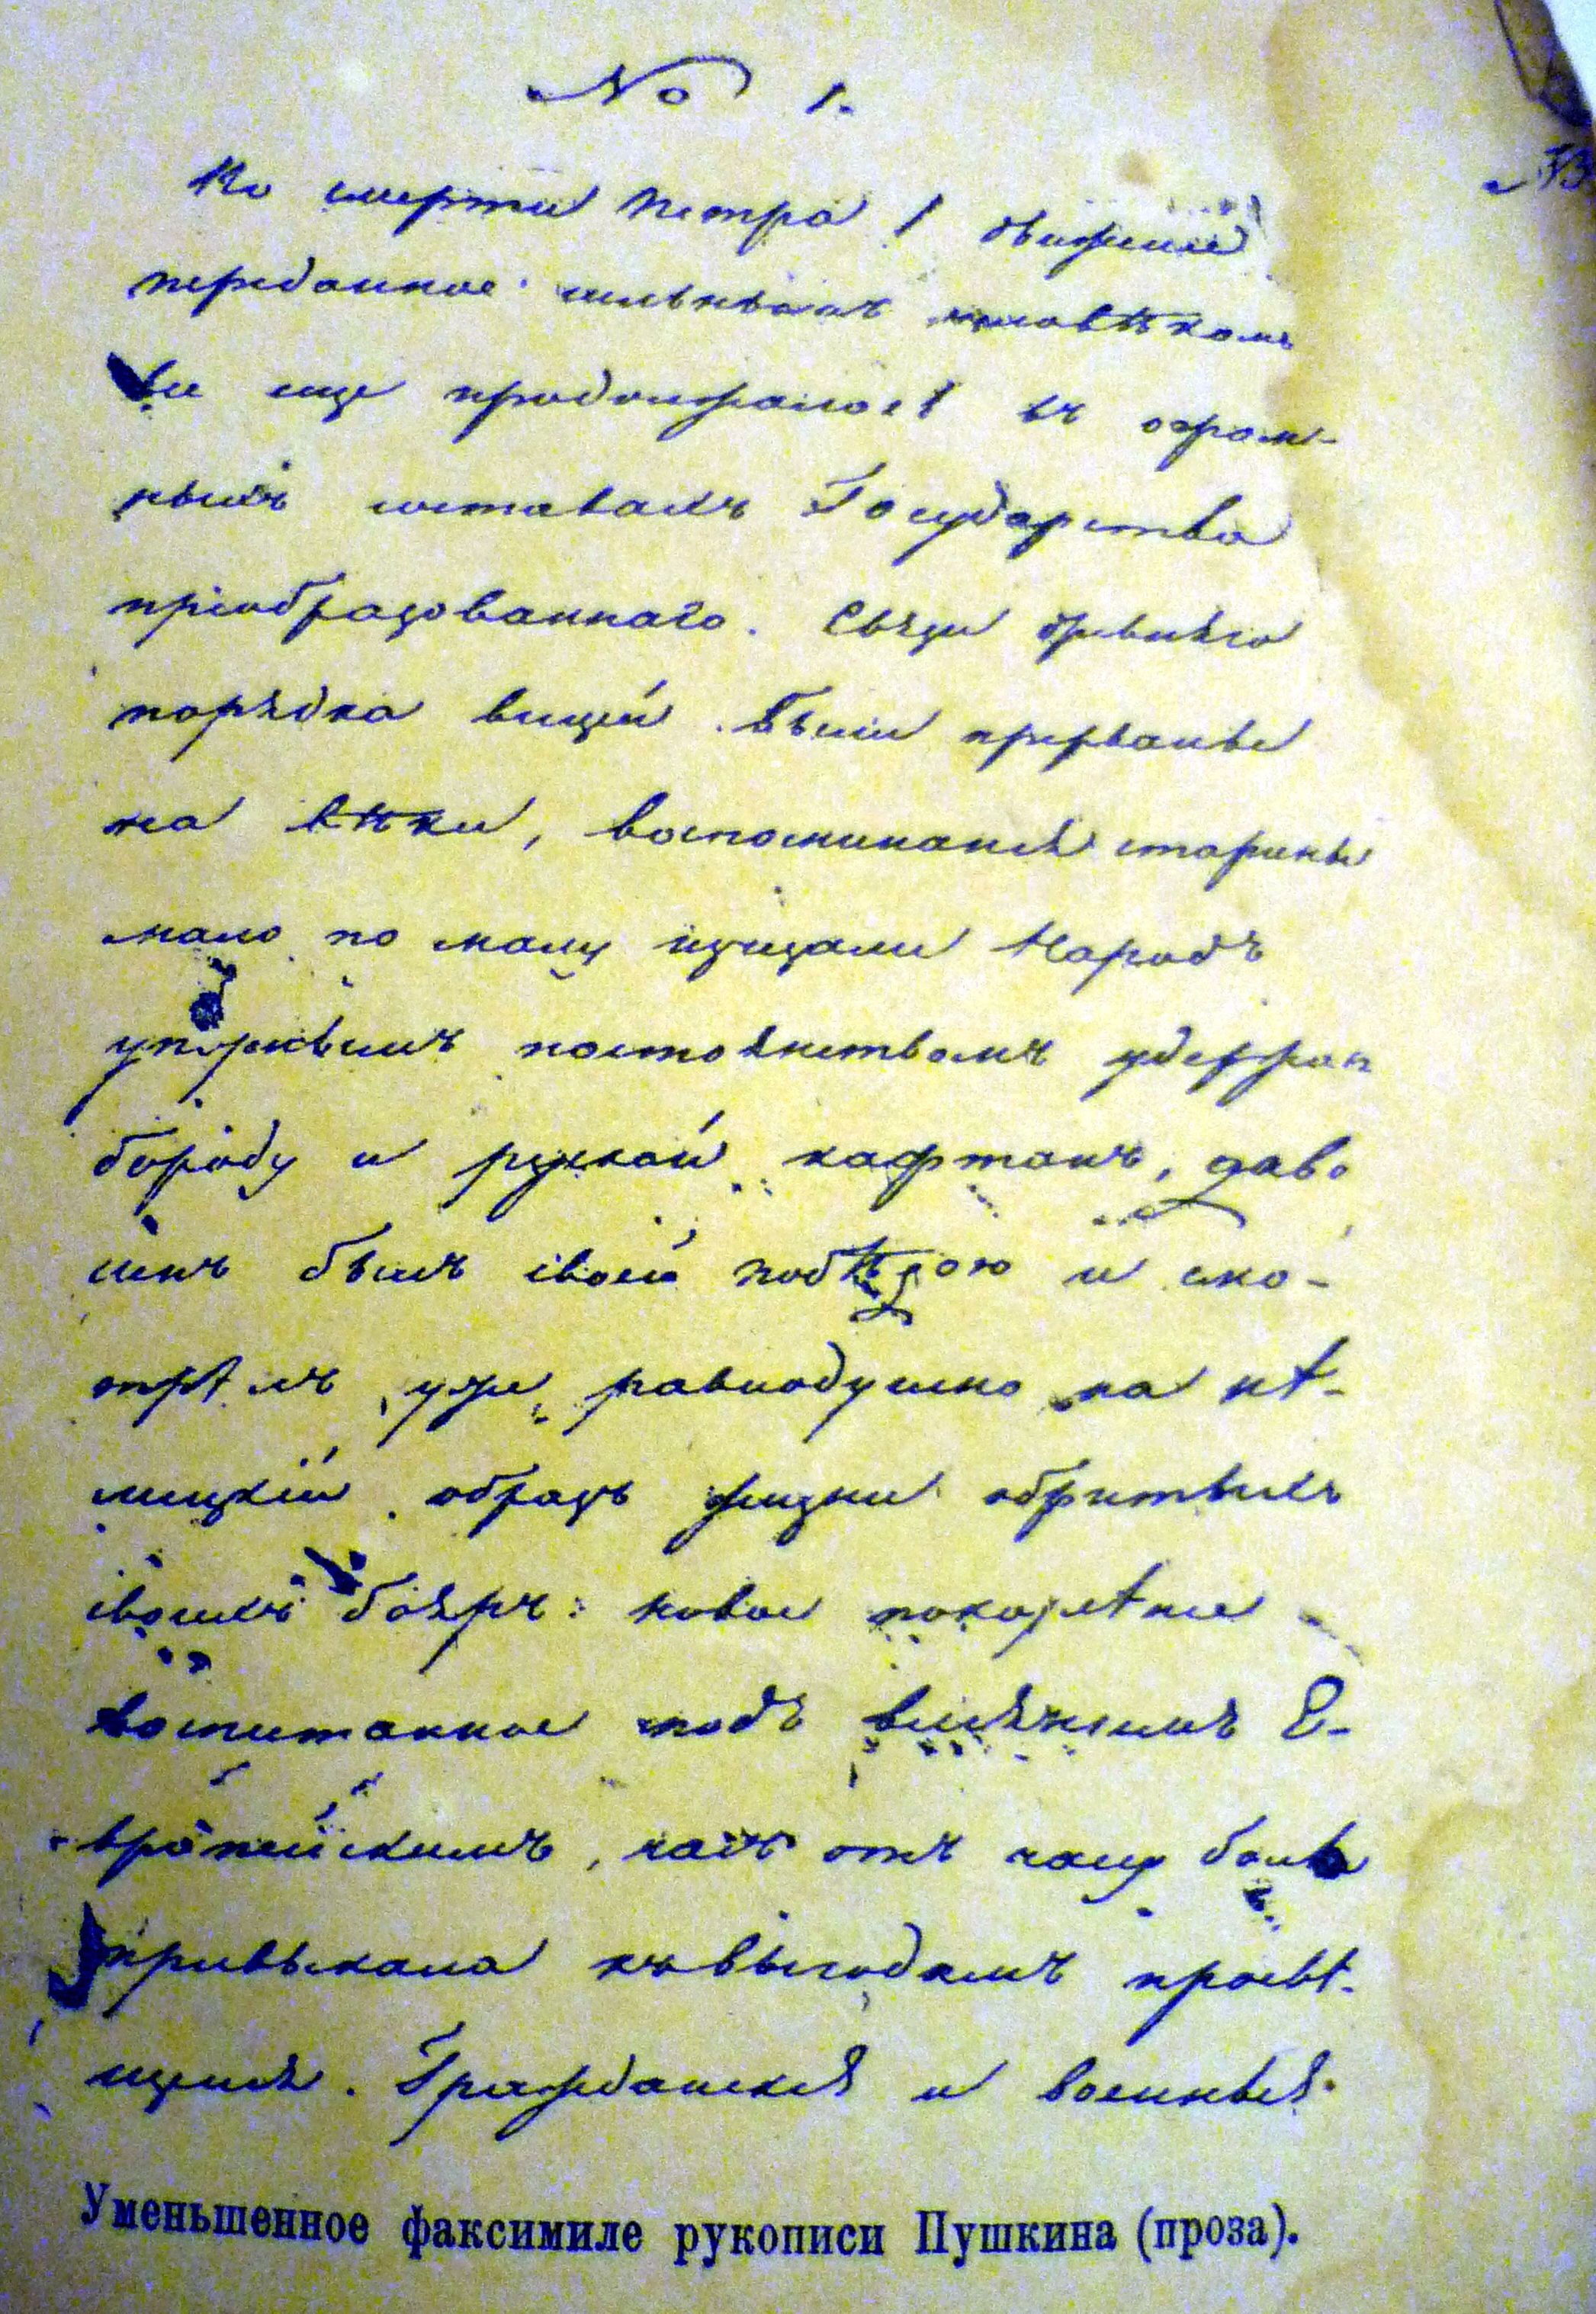 № 1.
По смерти Петра I движение
переданное сильнымъ человѣкомъ
все еще продолжалось въ огром-
ныхъ составахъ Государства
преобразованнаго. Связи древняго
порядка вещей были прерваны
на вѣки, воспоминанія старины
мало по малу исчезали Народъ
упорнымъ постоянствомъ удержав
бороду и русской кафтанъ, дово
ленъ былъ своей побѣдою и смо-
трѣлъ уже равнодушно на нѣ-
мецкій образъ жизни обритыхъ
своихъ бояръ: новое поколѣніе
воспитанное подъ вліяніемъ Е-
вропейскимъ, часъ отъ часу болѣе
привыкало къ выгодамъ просвѣ-
щенія. Гражданскія и военныя
Уменьшенное факсимиле рукописи Пушкина (проза).